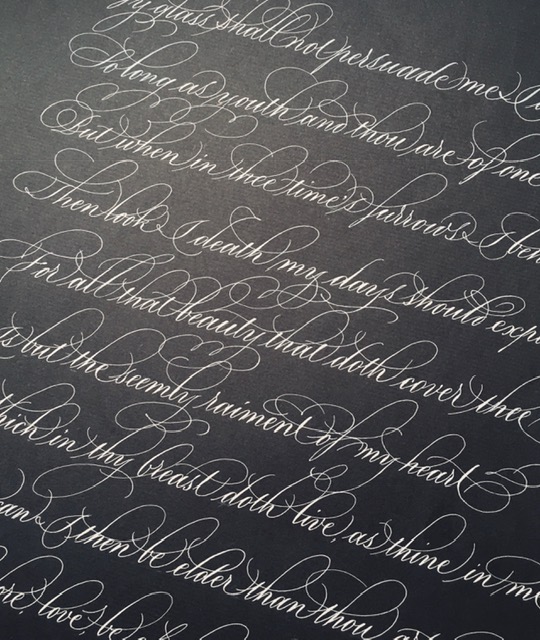 glass shall not persuade me I
So long as youth and thou are of one
But when in thee time's furrows I
Then look I death my days should
For all that beauty that doth cover thee
but the seemly raiment of my heart
in thy breast doth live, as thine in me
I then be elder than thou
love, be